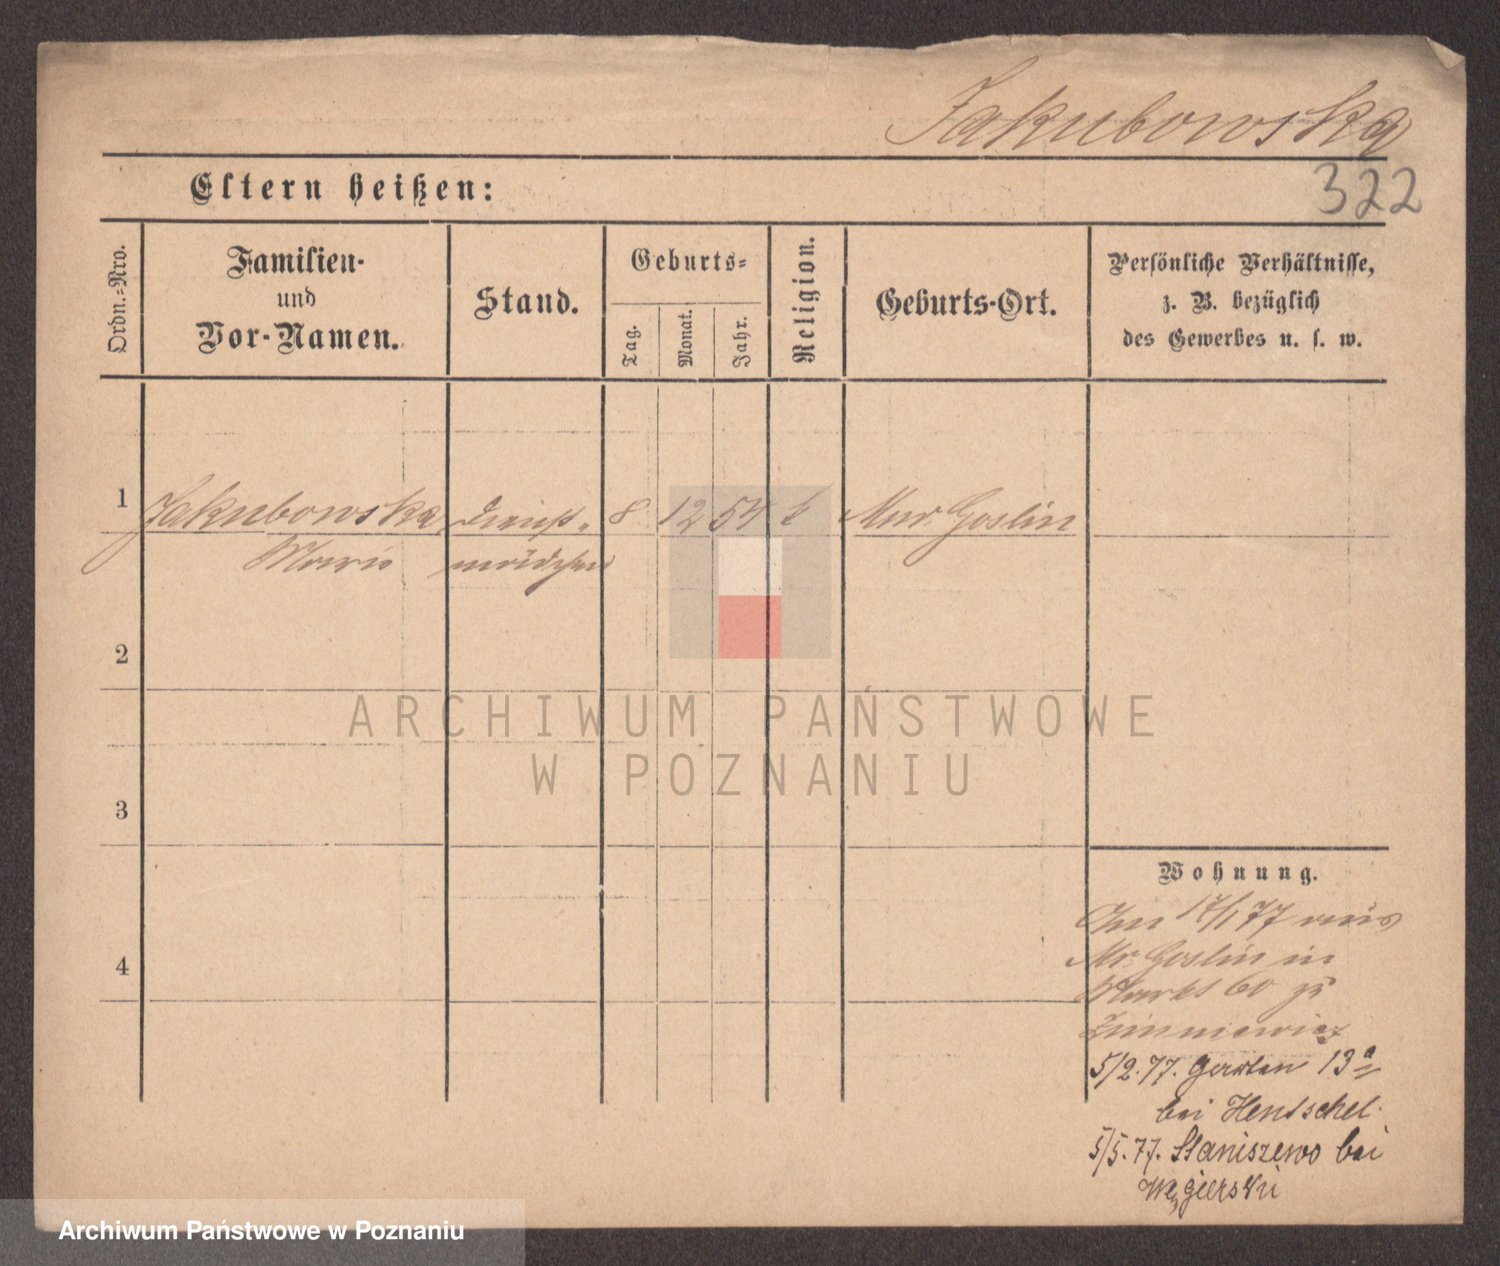 Jakubowska
322
Eltern heißen:
Ordn.-Nro.
Familien-
und
Vor-Namen.
Stand.
Geburts-
Tag.
Monat.
Jahr.
Religion.
Geburts-Ort.
Persönliche Verhältnisse,
z. B. bezüglich
des Gewerbes u. s. w.
1 Jakubowska Dienst- 8 12 54 k Mur. Goslin
Marie mädchen
2
3
4
Wohnung.
Am 17/1 77 aus
Mr. Goslin in
Markt 60 zu
5/2.77. Garten 13a
bei Hentschel.
5/5.77. Staniszewo bei
Węgierski
ARCHIWUM PAŃSTWOWE
W POZNANIU
Archiwum Państwowe w Poznaniu